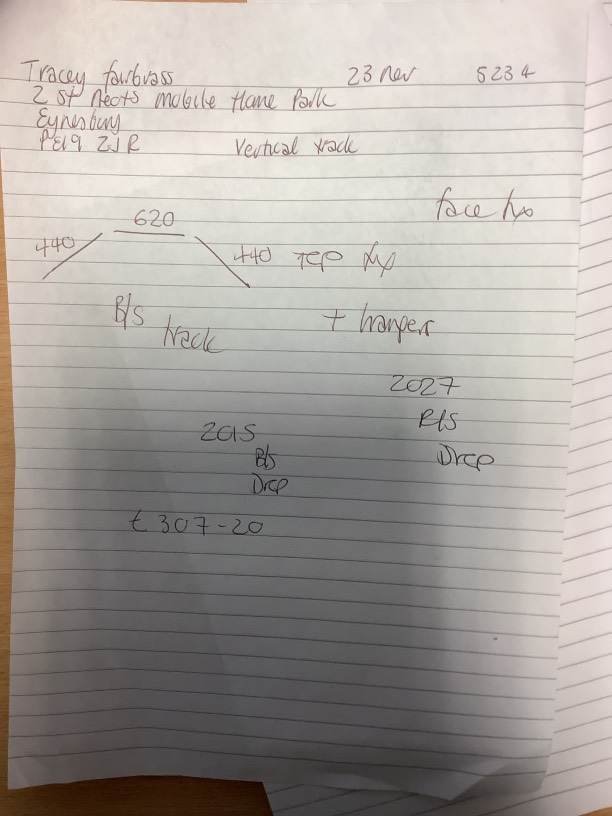 Tracey fairbrass 23 nov 5234
2 St Neots mobile Home Park
Eynesbury
PE19 2JR Vertical track
face fix
620
440
440 top fix
B/S
track
+ hangers
2027
B/S
Drop
2015
B/S
Drop
£307-20